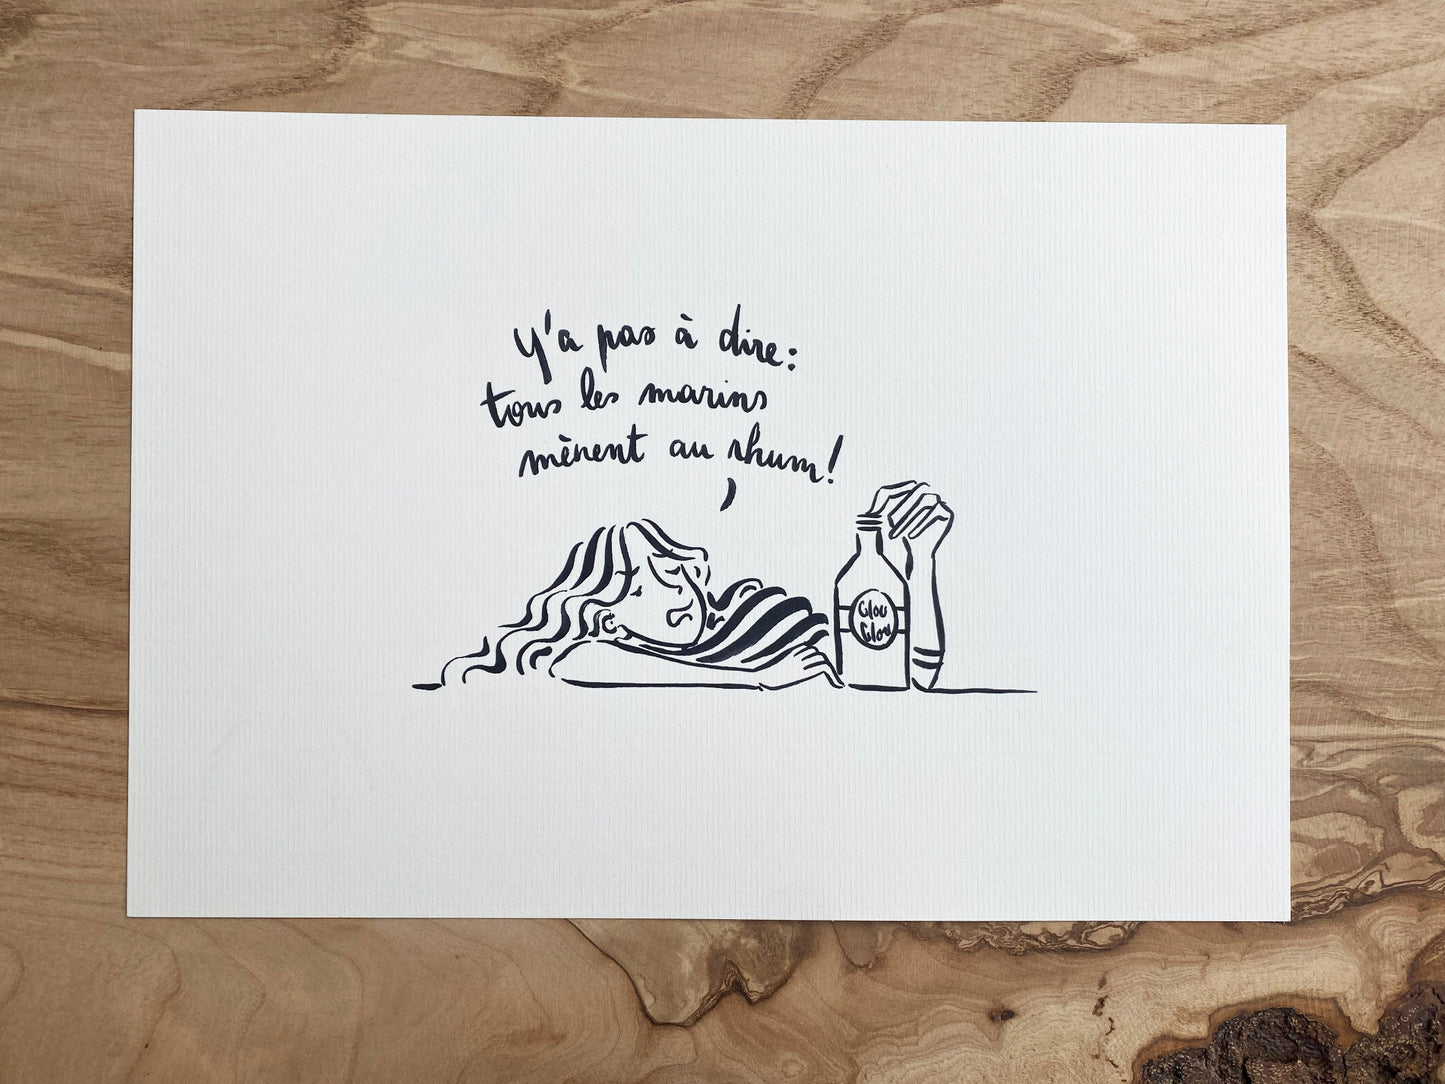 Y'a pas à dire:
tous les marins
mènent au rhum!
Glou
Glou